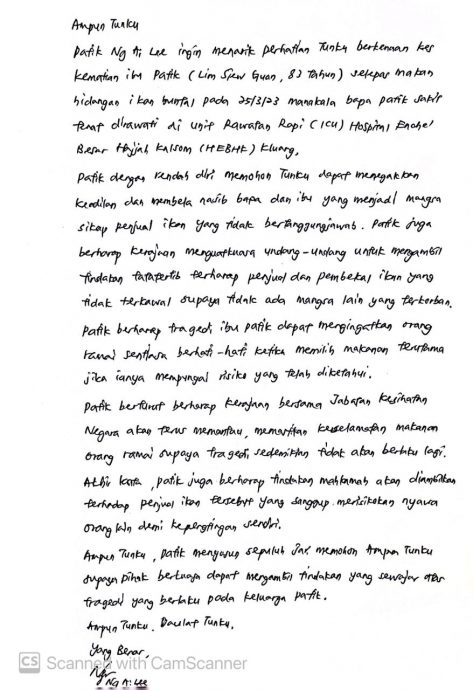 Ampun Tunku
Patik Ng Ai Lee ingin menarik perhatian Tunku berkenaan kes
kematian ibu patik (Lim Siew Guan, 83 tahun) selepas makan
hidangan ikan buntal pada 25/3/23 manakala bapa patik sakit
tenat dirawati di unit Rawatan Rapi (ICU) Hospital Enche'
Besar Hajjah Kalsom (HEBHK) Kluang,
Patik dengan rendah diri memohon Tunku dapat menegakkan
keadilan dan membela nasib bapa dan ibu yang menjadi mangsa
sikap penjual ikan yang tidak bertanggungjawab. Patik juga
berharap kerajaan menguatkuasa undang-undang untuk mengambil
tindakan tatatertib terharap penjual dan pembekal ikan yang
tidak terkawal supaya tidak ada mangsa lain yang terkorban.
Patik berharap tragedi ibu patik dapat mengingatkan orang
ramai sentiasa berhati-hati ketika memilih makanan terutama
jika ianya mempunyai risiko yang telah diketahui.
Patik berturut berharap kerajaan bersama Jabatan Kesihatan
Negara akan terus memantau, memastikan keselamatan makanan
orang ramai supaya tragedi sedemikian tidak akan berlaku lagi.
Akhir kata, patik juga berharap tindakan mahkamah akan diambilkan
terhadap penjual ikan tersebut yang sanggup merisikokan nyawa
orang lain demi kepentingan sendiri.
Ampun Tunku, patik menyusun sepuluh jari, memohon Ampun Tunku
supaya pihak berkuasa dapat mengambil tindakan yang sewajar atas
tragedi yang berlaku pada keluarga patik.
Ampun Tunku. Daulat Tunku.
Yang Benar,
Ng
Ng Ai Lee
CS Scanned with CamScanner